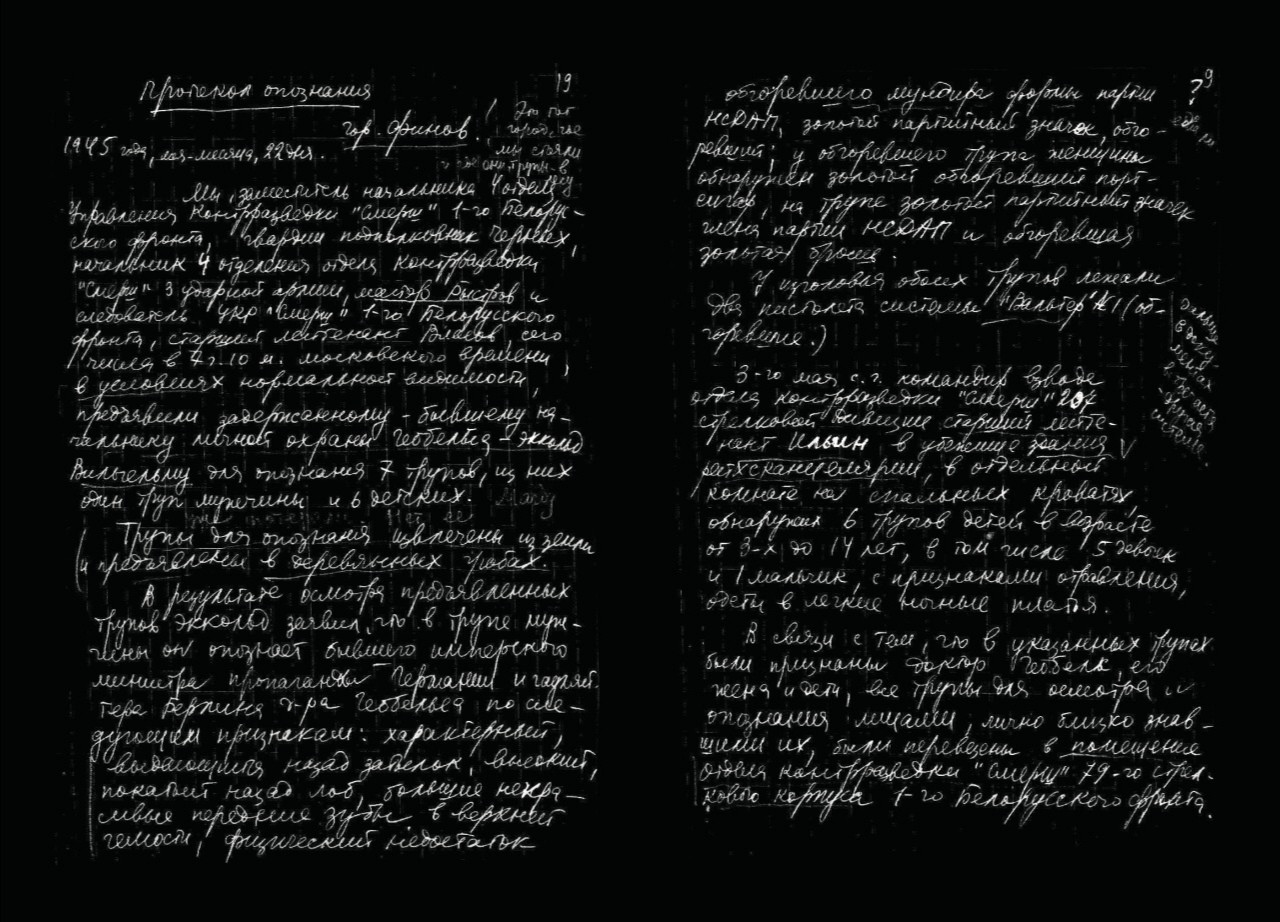 19
Протокол опознания
гор. Финов.
! Это тот
город, где
мы стояли
1945 года, мая-месяца, 22 дня.
Мы, заместитель начальника 4 отдела
Управления Контрразведки "Смерш" 1-го Белорус-
ского фронта, гвардии подполковник Черных,
начальник 4 отделения отдела Контрразведки
"Смерш" 3 ударной армии, майор Быстров и
следователь УКР "Смерш" 1-го Белорусского
фронта, старший лейтенант Власов, сего
числа в 7 ч. 10 м. московского времени,
в условиях нормальной видимости,
предъявили задержанному - бывшему на-
чальнику личной охраны Геббельса - Эккольд
Вильгельму для опознания 7 трупов, из них
один труп мужчины и 6 детских. Магду
уже Нет ее
Трупы для опознания извлечены из земли
и предъявлены в деревянных гробах.
В результате осмотра предъявленных
трупов Эккольд заявил, что в трупе муж-
чины он опознает бывшего имперского
министра пропаганды Германии и гауляй-
тера Берлина д-ра Геббельса по сле-
дующим признакам: характерный,
выдающийся назад затылок, высокий,
покатый назад лоб, большие некра-
сивые передние зубы в верхней
челюсти, физический недостаток
9
?
обгоревшего мундира формы партии
НСДАП, золотой партийный значок, обго-
ревший; у обгоревшего трупа женщины
обнаружен золотой обгоревший порт-
сигар, на трупе золотой партийный значек
члена партии НСДАП и обгоревшая
золотая брошь.
У изголовья обоих трупов лежали
два пистолета системы "Вальтер №1 (об-
горевшие.)
3-го мая с.г. командир взвода
отдела контрразведки "Смерш" 207
стрелковой дивизии старший лейте-
нант Ильин в убежище здания
рейхсканцелярии, в отдельной
комнате на спальных кроватях
обнаружил 6 трупов детей в возрасте
от 3-х до 14 лет, в том числе 5 девочек
и 1 мальчик, с признаками отравления,
одеты в легкие ночные платья.
В связи с тем, что в указанных трупах
были признаны доктор Геббельс, его
жена и дети, все трупы для осмотра и
опознания лицами, лично близко знав-
шими их, были перевезены в помещение
отдела контрразведки "Смерш" 79-го стрел-
кового корпуса 1-го Белорусского фронта.